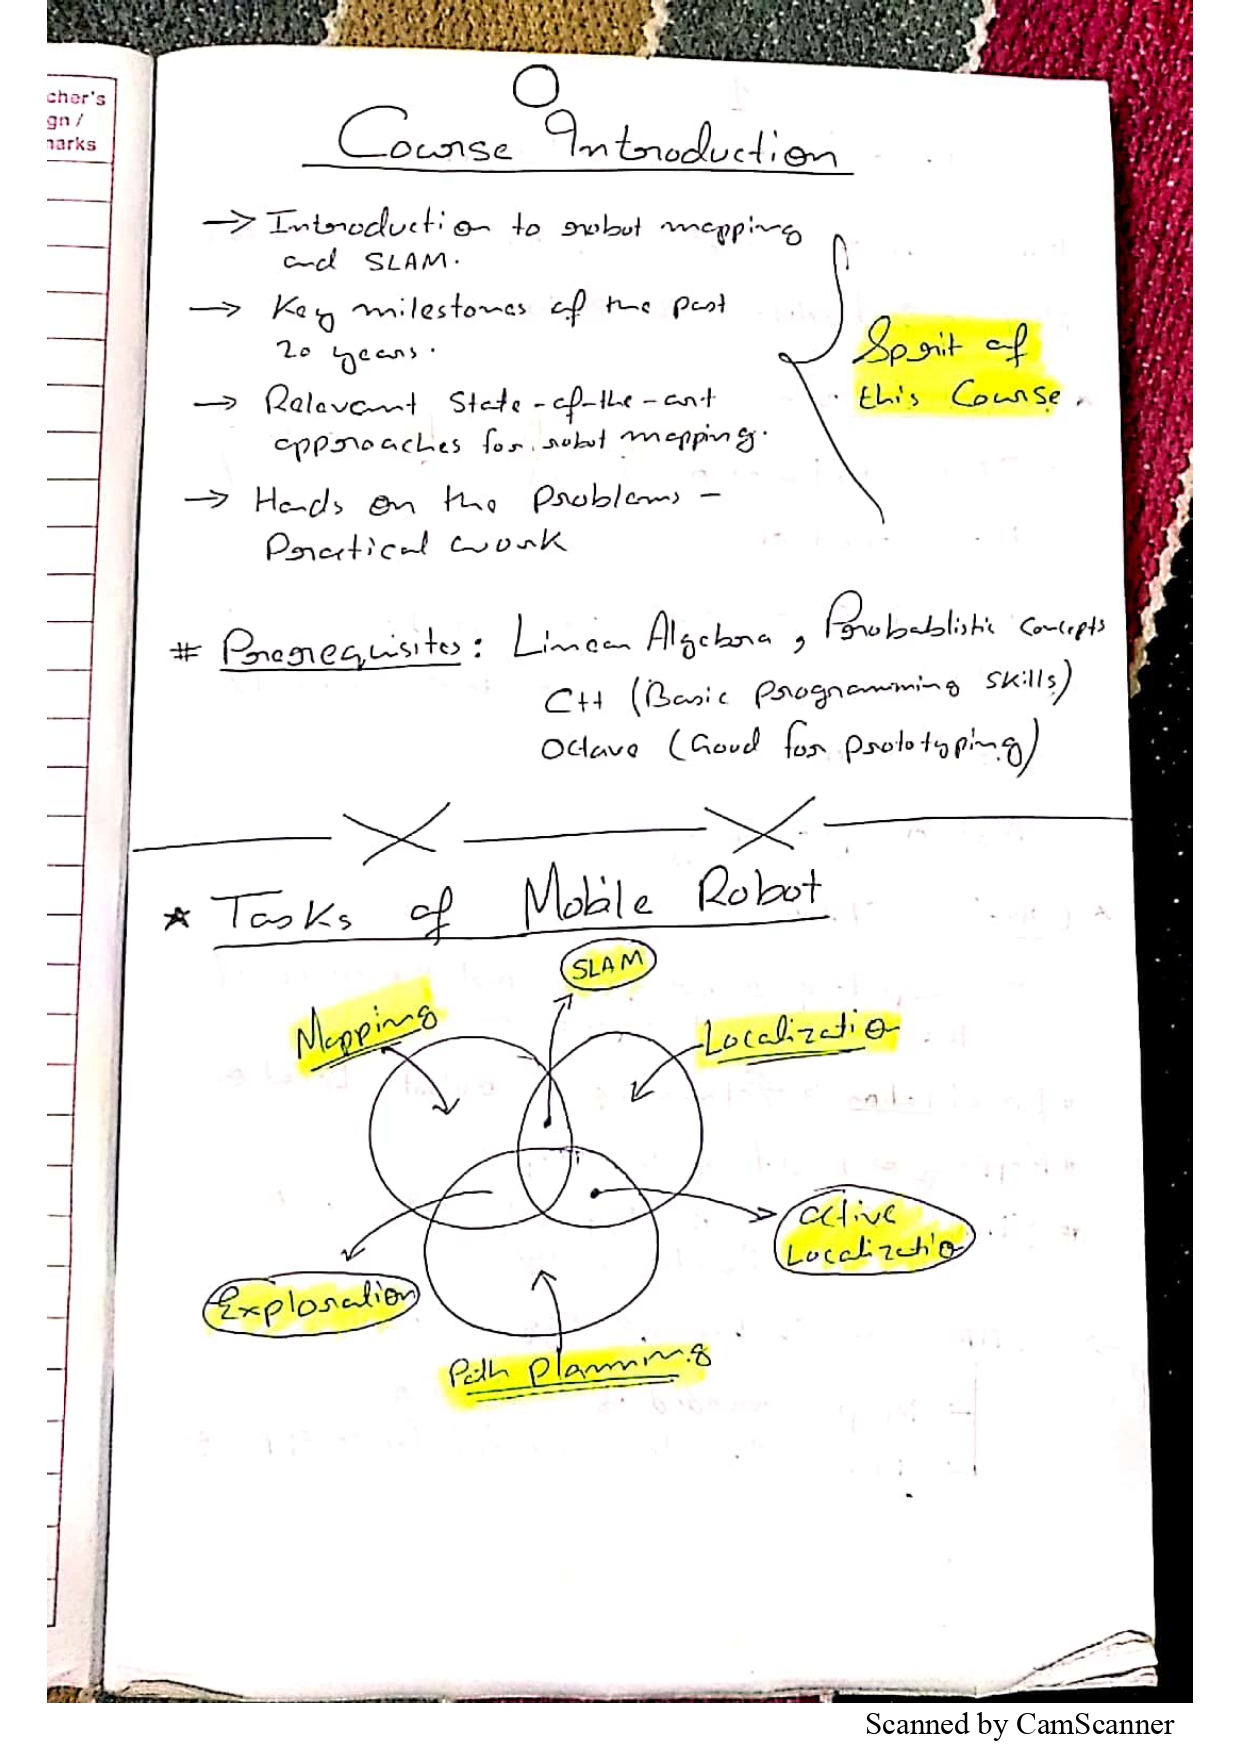 cher's
gn /
narks
Course Introduction
→ Introduction to robot mapping
and SLAM.
→ Key milestones of the past
20 years.
→ Relevant State-of-the-art
approaches for robot mapping.
→ Hands on the problems -
Practical work
Spirit of
this Course.
# Prerequisites: Linear Algebra, Probablistic Concepts
C++ (Basic programming skills)
Octave (Good for prototyping)
* Tasks of Mobile Robot
SLAM
Mapping
Localization
active
Localization
Exploration
Path planning
Scanned by CamScanner